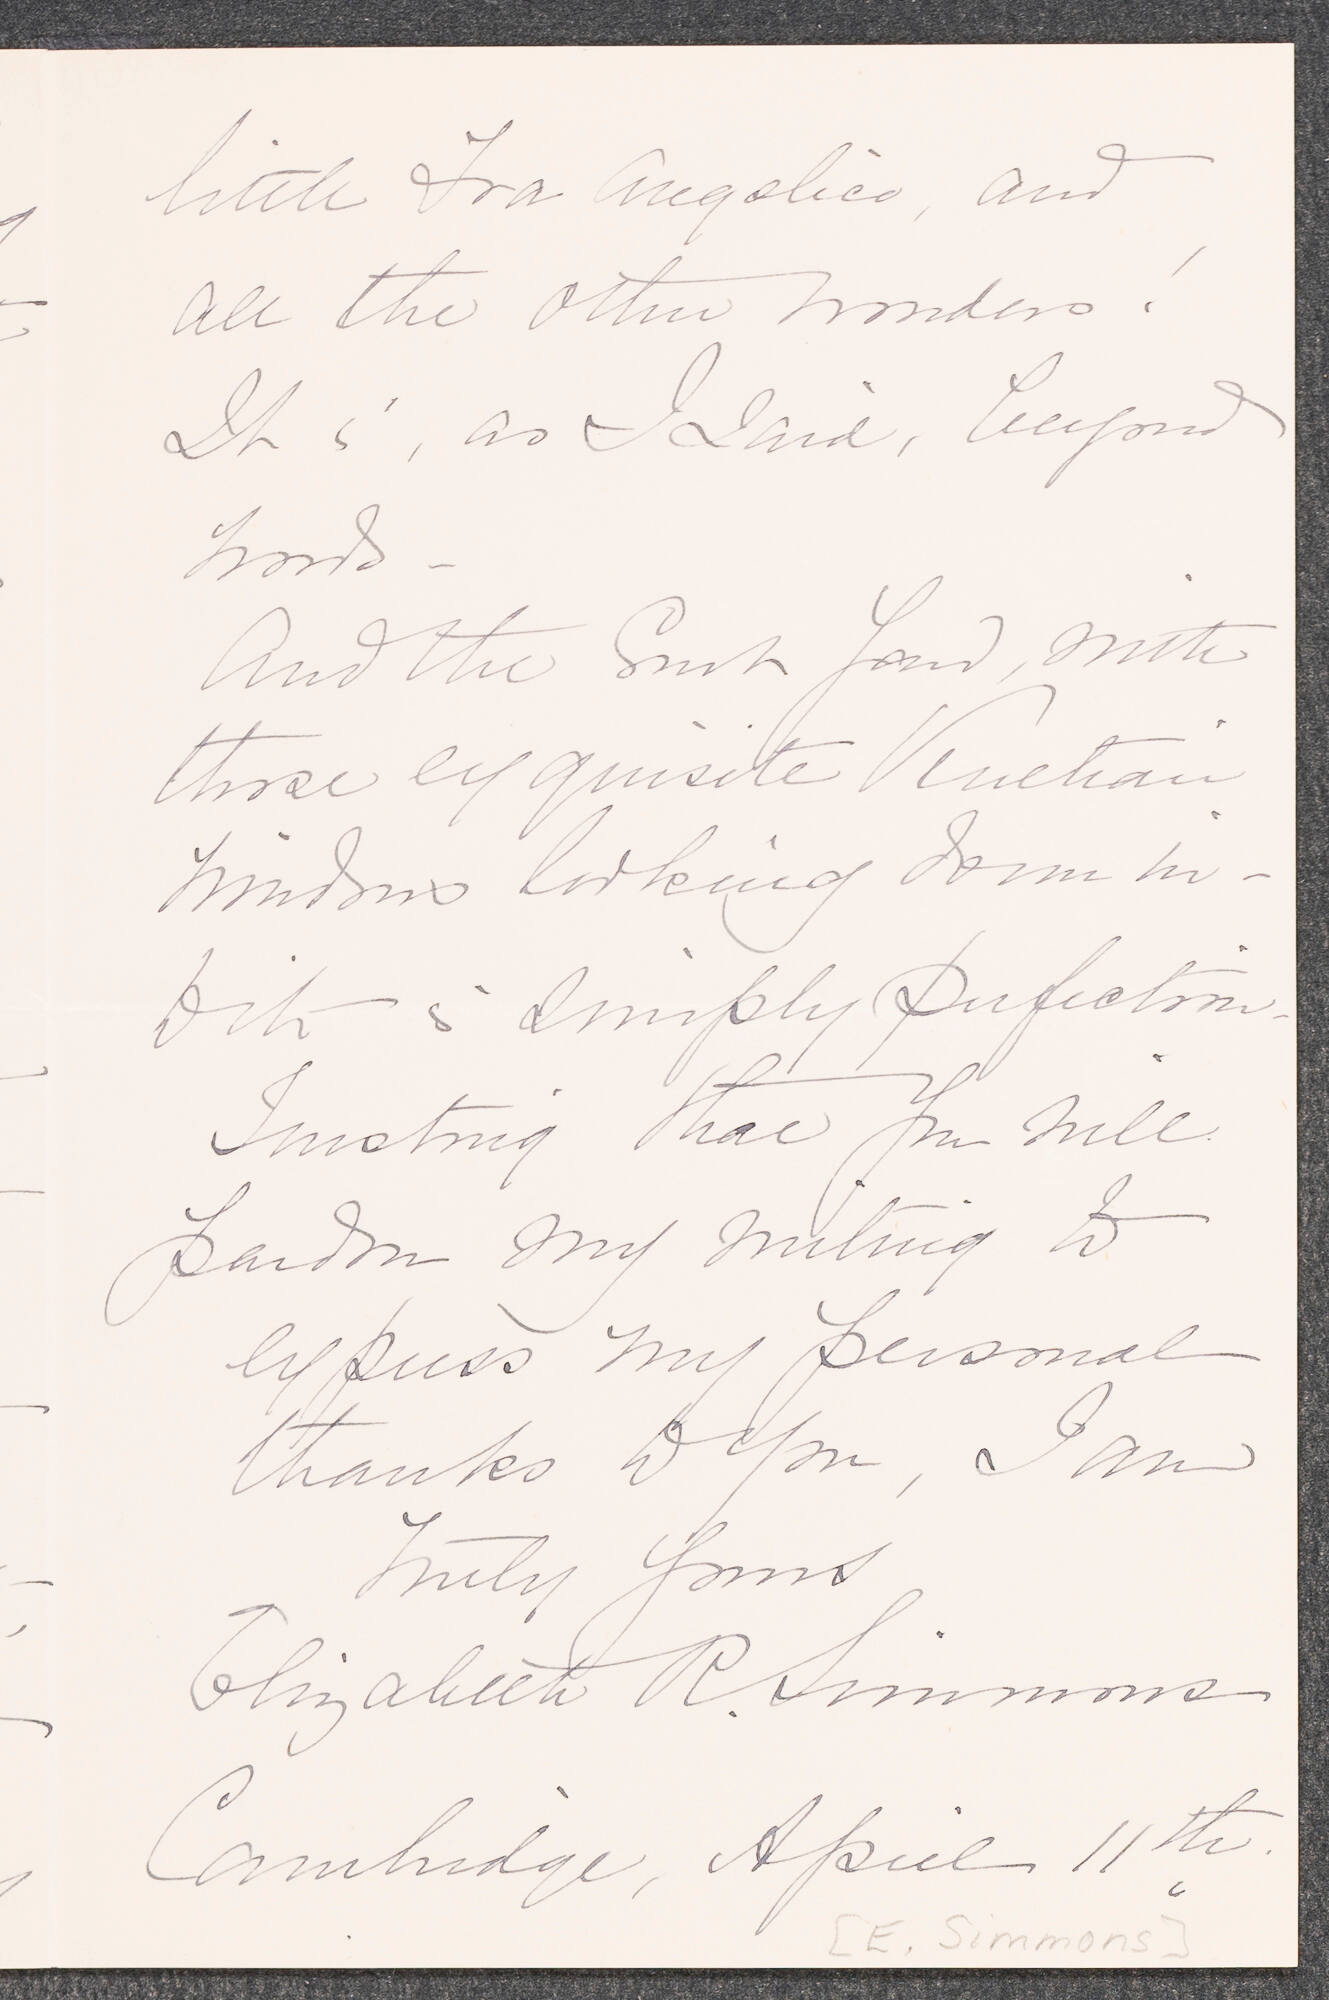 little Fra Angelico, and
all the other wonders!
It is, as I said, beyond
words -
And the Court Yard, with
those exquisite Venetian
windows looking down in-
to it is simply perfection.
Trusting that you will
pardon my writing to
express my personal
thanks to you, I am
Truly yours
Elizabeth R. Simmons
Cambridge, April 11th.
[E. Simmons]